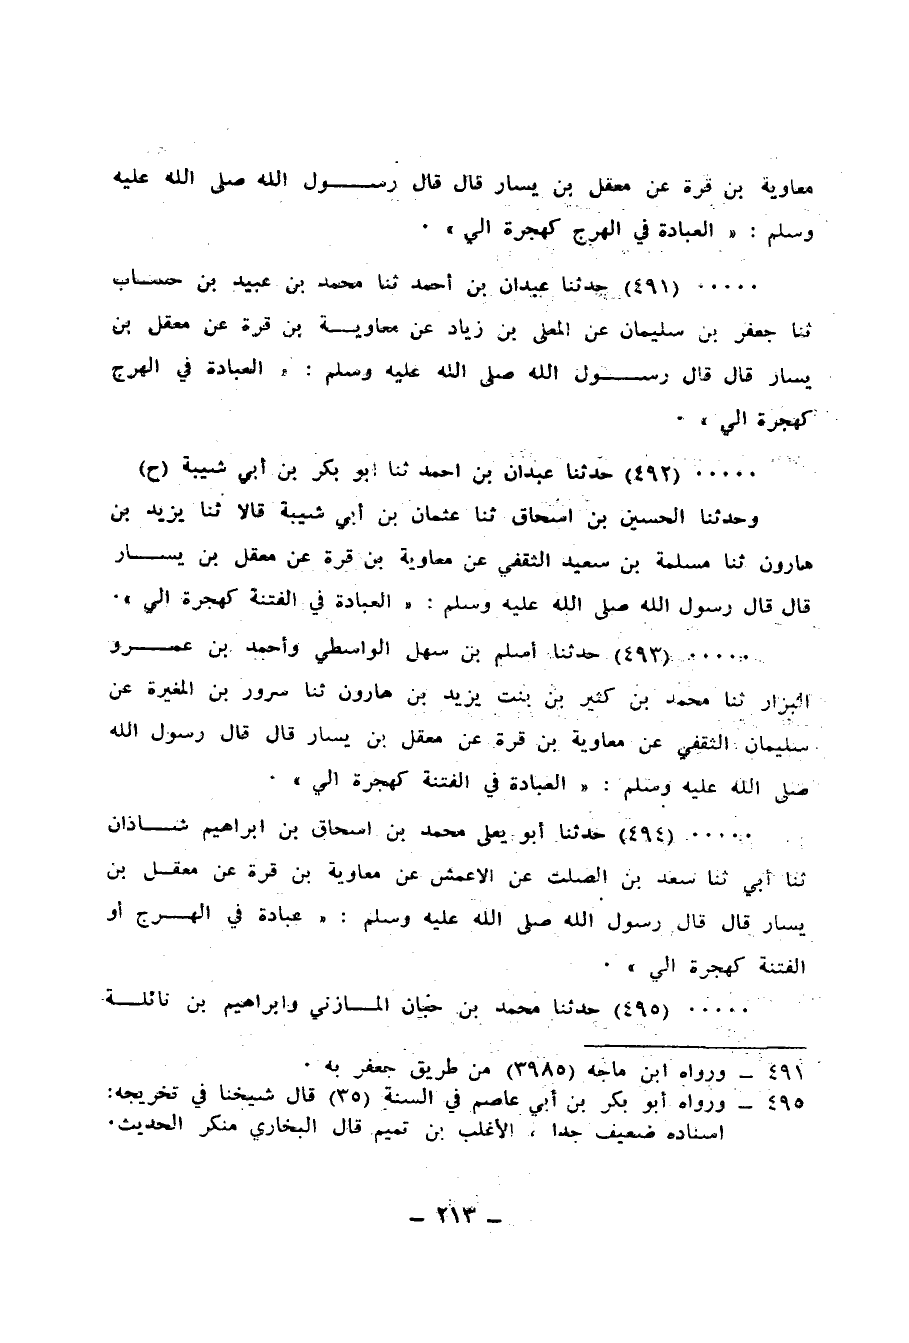 معاوية بن قرة عن معقل بن يسار قال قال رســـــول الله صلى الله عليه
وسلم : « العبادة في الهرج كهجرة الي » ٠
٠٠٠٠٠ (٤٩١) حدثنا عبدان بن أحمد ثنا محمد بن عبيد بن حســاب
ثنا جعفر بن سليمان عن المعلى بن زياد عن معاويــة بن قرة عن معقل بن
يسار قال قال رســـــول الله صلى الله عليه وسلم : « العبادة في الهرج
كهجرة الي » ٠
٠٠٠٠٠ (٤٩٢) حدثنا عبدان بن احمد ثنا ابو بكر بن أبي شيبة (ح)
وحدثنا الحسين بن اسحاق ثنا عثمان بن أبي شيبة قالا ثنا يزيد بن
هارون ثنا مسلمة بن سعيد الثقفي عن معاوية بن قرة عن معقل بن يســـار
قال قال رسول الله صلى الله عليه وسلم : « العبادة في الفتنة كهجرة الي »٠
٠٠٠٠٠ (٤٩٣) حدثنا أسلم بن سهل الواسطي وأحمد بن عمـــرو
البزار ثنا محمد بن كثير بن بنت يزيد بن هارون ثنا سرور بن المغيرة عن
سليمان الثقفي عن معاوية بن قرة عن معقل بن يسار قال قال رسول الله
صلى الله عليه وسلم : « العبادة في الفتنة كهجرة الي » ٠
٠٠٠٠٠ (٤٩٤) حدثنا أبو يعلى محمد بن اسحاق بن ابراهيم شــاذان
ثنا أبي ثنا سعد بن الصلت عن الاعمش عن معاوية بن قرة عن معقــل بن
يسار قال قال رسول الله صلى الله عليه وسلم : « عبادة في الهـــرج أو
الفتنة كهجرة الي » ٠
٠٠٠٠٠ (٤٩٥) حدثنا محمد بن حبان المــازني وابراهيم بن نائلــة
٤٩١ ـ ورواه ابن ماجه (٣٩٨٥) من طريق جعفر به ٠
٤٩٥ ـ ورواه أبو بكر بن أبي عاصم في السنة (٣٥) قال شيخنا في تخريجه:
اسناده ضعيف جدا ، الأغلب بن تميم قال البخاري منكر الحديث٠
ـ ٢١٣ ـ